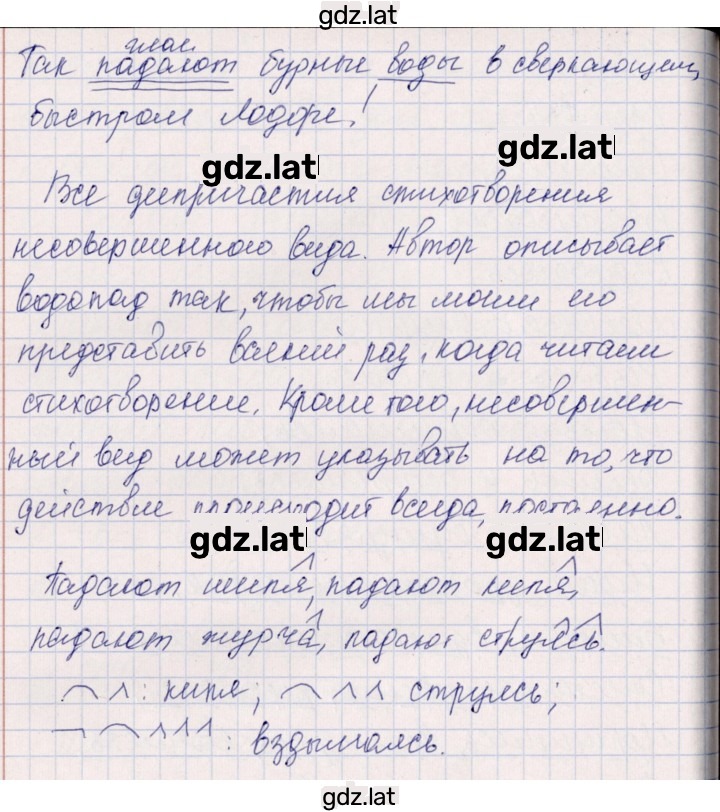 gdz.lat
глаг.
Так падают бурные воды в сверкающем,
быстром Лодоре!
gdz.lat gdz.lat
Все дипричастия стихотворения
несовершенного вида. Автор описывает
водопад так, чтобы мы могли его
представить всякий раз, когда читаем
стихотворение. Кроме того, несовершен-
ный вид может указывать на то, что
действие происходит всегда, постоянно.
gdz.lat gdz.lat
Падают шипя, падают кипя,
падают журча, падают струясь.
: кипя; струясь;
: вздымаясь.
gdz.lat